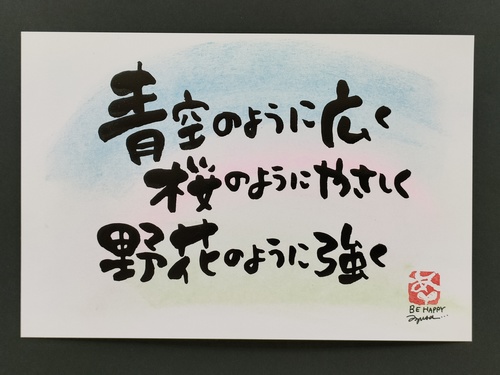 青空のように広く
桜のようにやさしく
野花のように強く
BE HAPPY